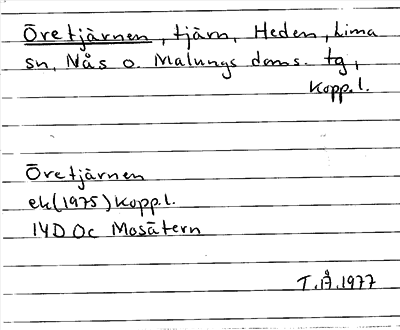 Öretjärnen, tjärn, Heden, Lima
sn, Nås o. Malungs doms. tg,
Kopp.l.
Öretjärnen
ek(1975) Kopp.l.
14D Oc Mosätern
T.Å.1977